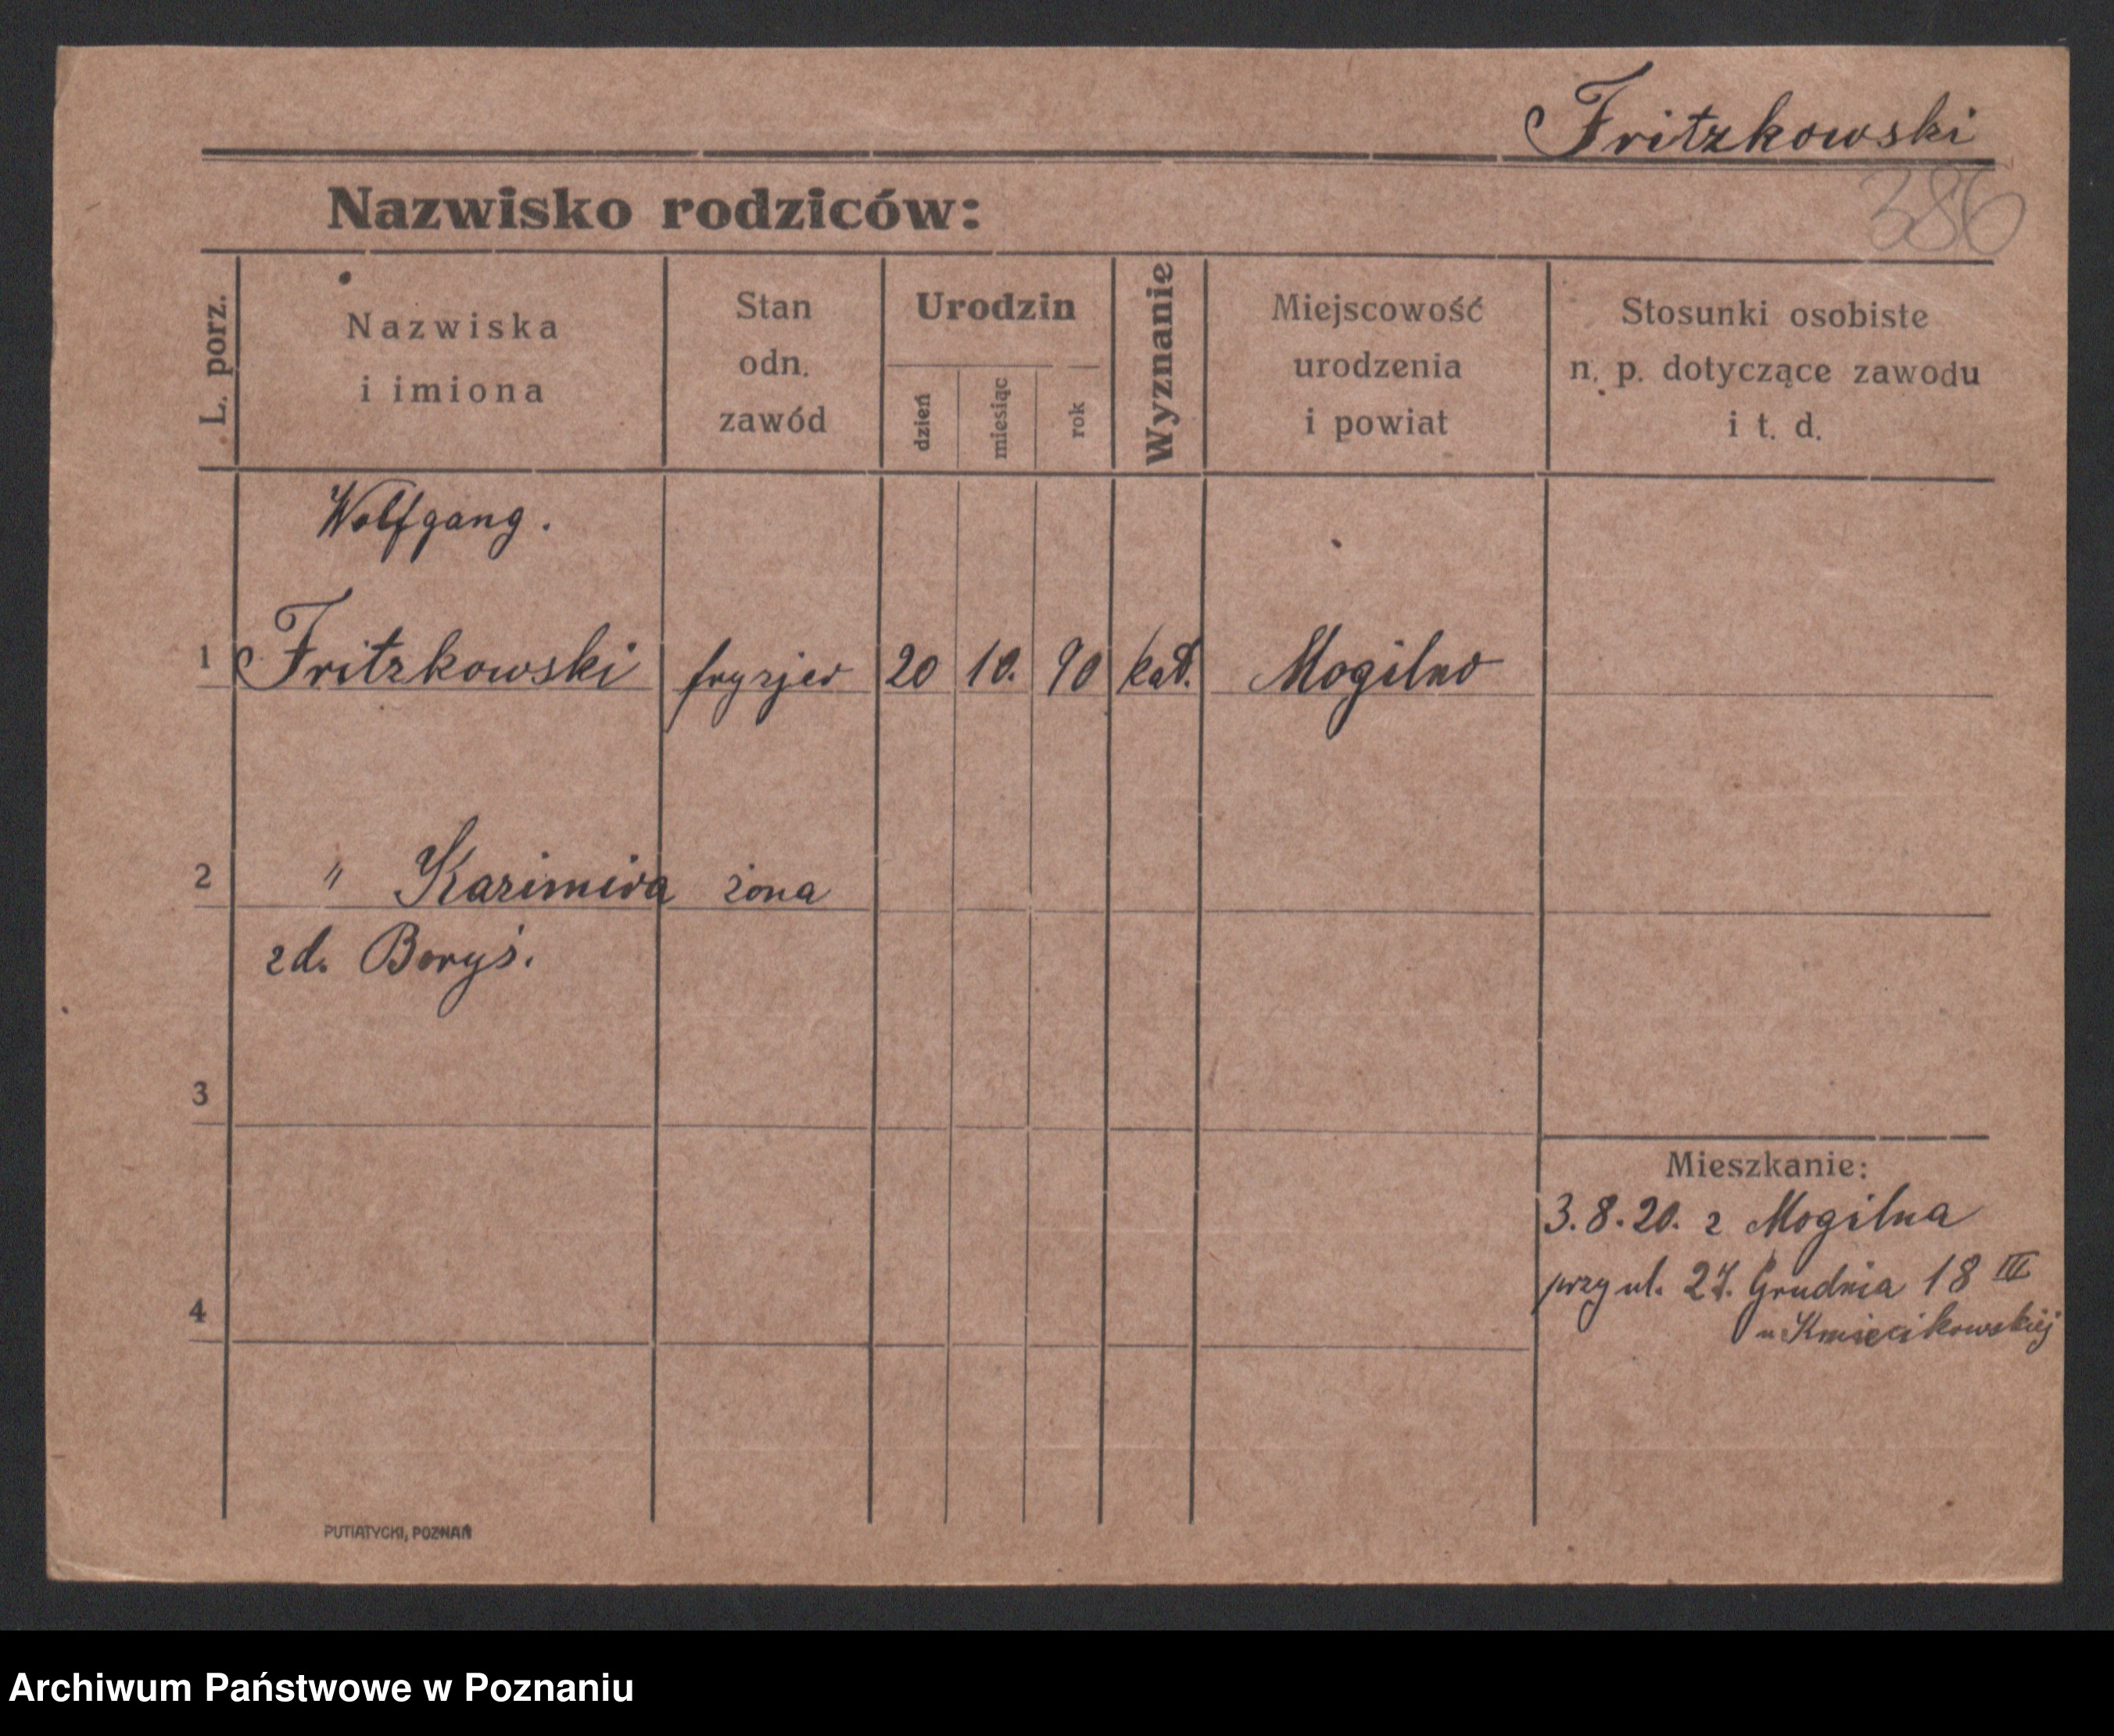 Fritzkowski
386
Nazwisko rodziców:
L. porz.
Nazwiska
i imiona
Stan
odn.
zawód
Urodzin
dzień
miesiąc
rok
Wyznanie
Miejscowość
urodzenia
i powiat
Stosunki osobiste
n. p. dotyczące zawodu
i t. d.
Wolfgang.
1 Fritzkowski fryzjer 20 10. 90 kat. Mogilno
2 " Kazimira żona
zd. Boryś.
3
Mieszkanie:
3.8.20. z Mogilna
przy ul. 27. Grudnia 18 III
u Kmiecikowskiej
4
PUTIATYCKI, POZNAŃ
Archiwum Państwowe w Poznaniu